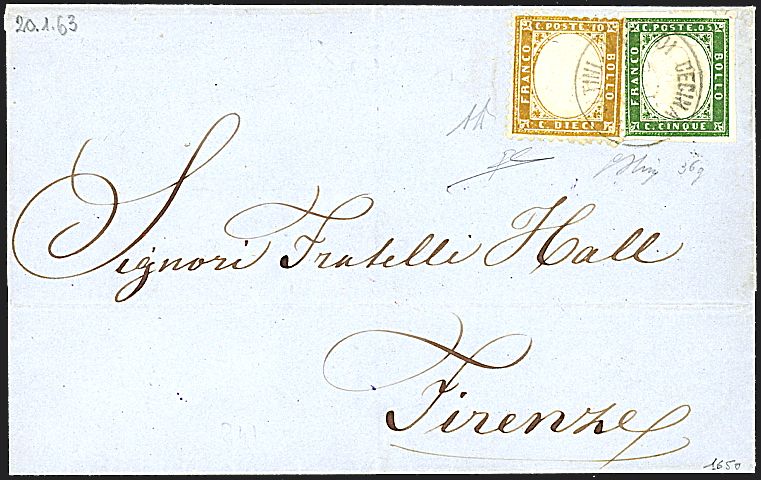 20.1.63
C. POSTE. 10
FRANCO
BOLLO
C. DIECI
C. POSTE. 05
FRANCO
BOLLO
C. CINQUE
Signori Fratelli Hall
Firenze
1650